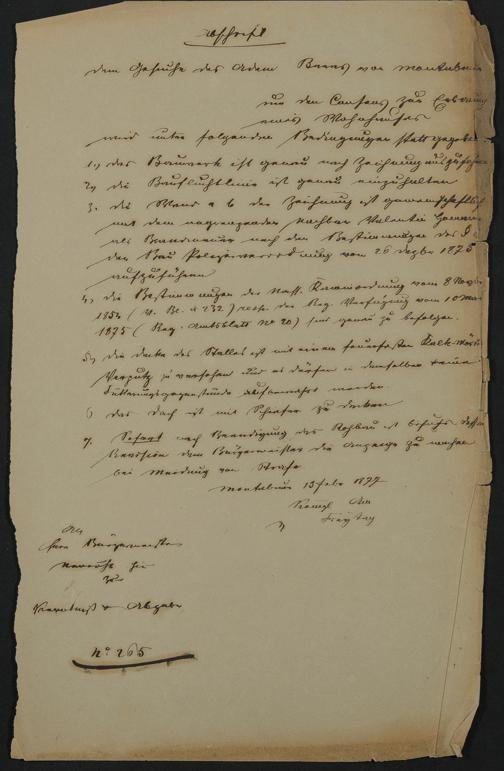 Abschrift
dem Gesuche des Adam Brens von Montabaur
um den Consens zur Erbauung
eines Wohnhauses
wird unter folgenden Bedingungen statt gegeben
1, das Bauwerk ist genau nach Zeichnung auszuführen
2, die Baufluchtlinie ist genau einzuhalten
3, die Wand a b der Zeichnung ist gemeinschaftlich
mit dem angrenzenden Nachbar Valentin
als Brandmauer nach den Bestimmungen des §
der Bau Polizeiverordnung vom 26 Dezbr 1875
aufzuführen
4, die Bestimmungen der Nass. Verordnung vom 8 Novbr
1854 (V. Bl. S 232) resp. der Reg. Verfügung vom 10 März
1875 (Reg. Amtsblatt No 20) sind genau zu befolgen.
5, die Decke des Stalles ist mit einem feuerfesten Kalk
Verputz zu versehen und es dürfen in demselben keine
Fütterungsgegenstände aufbewahrt werden
6, das Dach ist mit Schiefer zu decken
7, Sofort nach Beendigung des Rohbau ist behufs dessen
Revision dem Bürgermeister die Anzeige zu machen
bei Meidung von Strafe
Montabaur 13 Febr 1877
Königl Amt
Freytag
An
Herrn Bürgermeister
hier
zur
Kenntniß & Abgabe
No 265